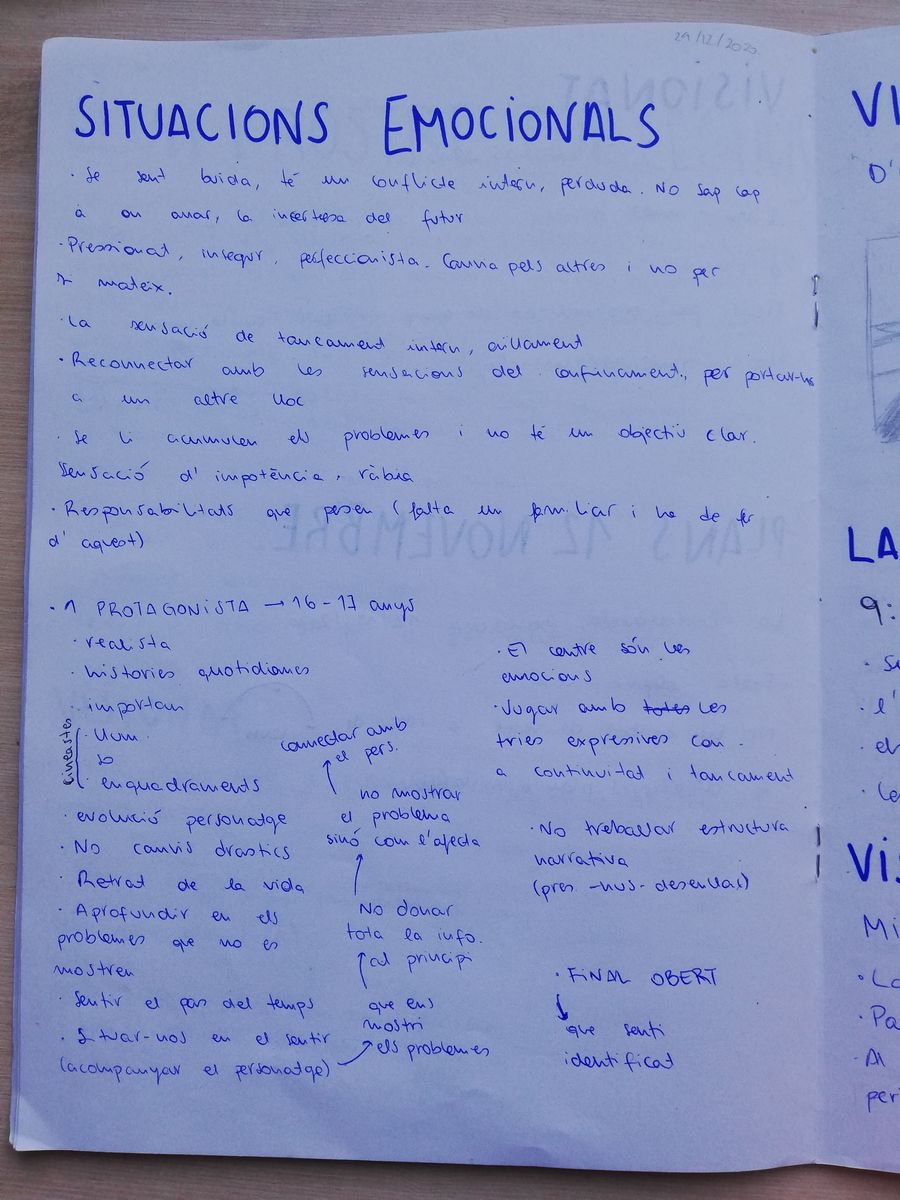 29/12/2020
SITUACIONS EMOCIONALS
· Se sent buida, té un conflicte intern, perduda. No sap cap
a on anar, la incertesa del futur
· Pressionat, insegur, perfeccionista. Canvia pels altres i no per
si mateix.
· La sensació de tancament intern, aïllament
· Reconnectar amb les sensacions del confinament, per portar-les
a un altre lloc
· Se li acumulen els problemes i no té un objectiu clar.
Sensació d'impotència, ràbia
· Responsabilitats que pesen (falta un familiar i ha de fer
d'aquest)
· 1 PROTAGONISTA → 16-17 anys
· realista
· histories quotidianes
· importan
cineastes
· llum
· so
· enquadraments
· evolució personatge
· No canvis drastics
· Retrat de la vida
· Aprofundir en els
problemes que no es
mostren
· Sentir el pas del temps
· Situar-nos en el sentir
(acompanyar el personatge)
connectar amb
el pers.
no mostrar
el problema
sinó com l'afecta
No donar
tota la info.
al principi
que ens
mostri
els problemes
· El centre són les
emocions
· Jugar amb totes les
tries expressives con.
a continuitat i tancament
· No treballar estructura
narrativa
(pres.-nus-desenllaç)
· FINAL OBERT
que senti
identificat
VI
D'
LA
9:
· Se
· l'
· el
· Le
VIS
Mi
· La
· Pa
· Al
per